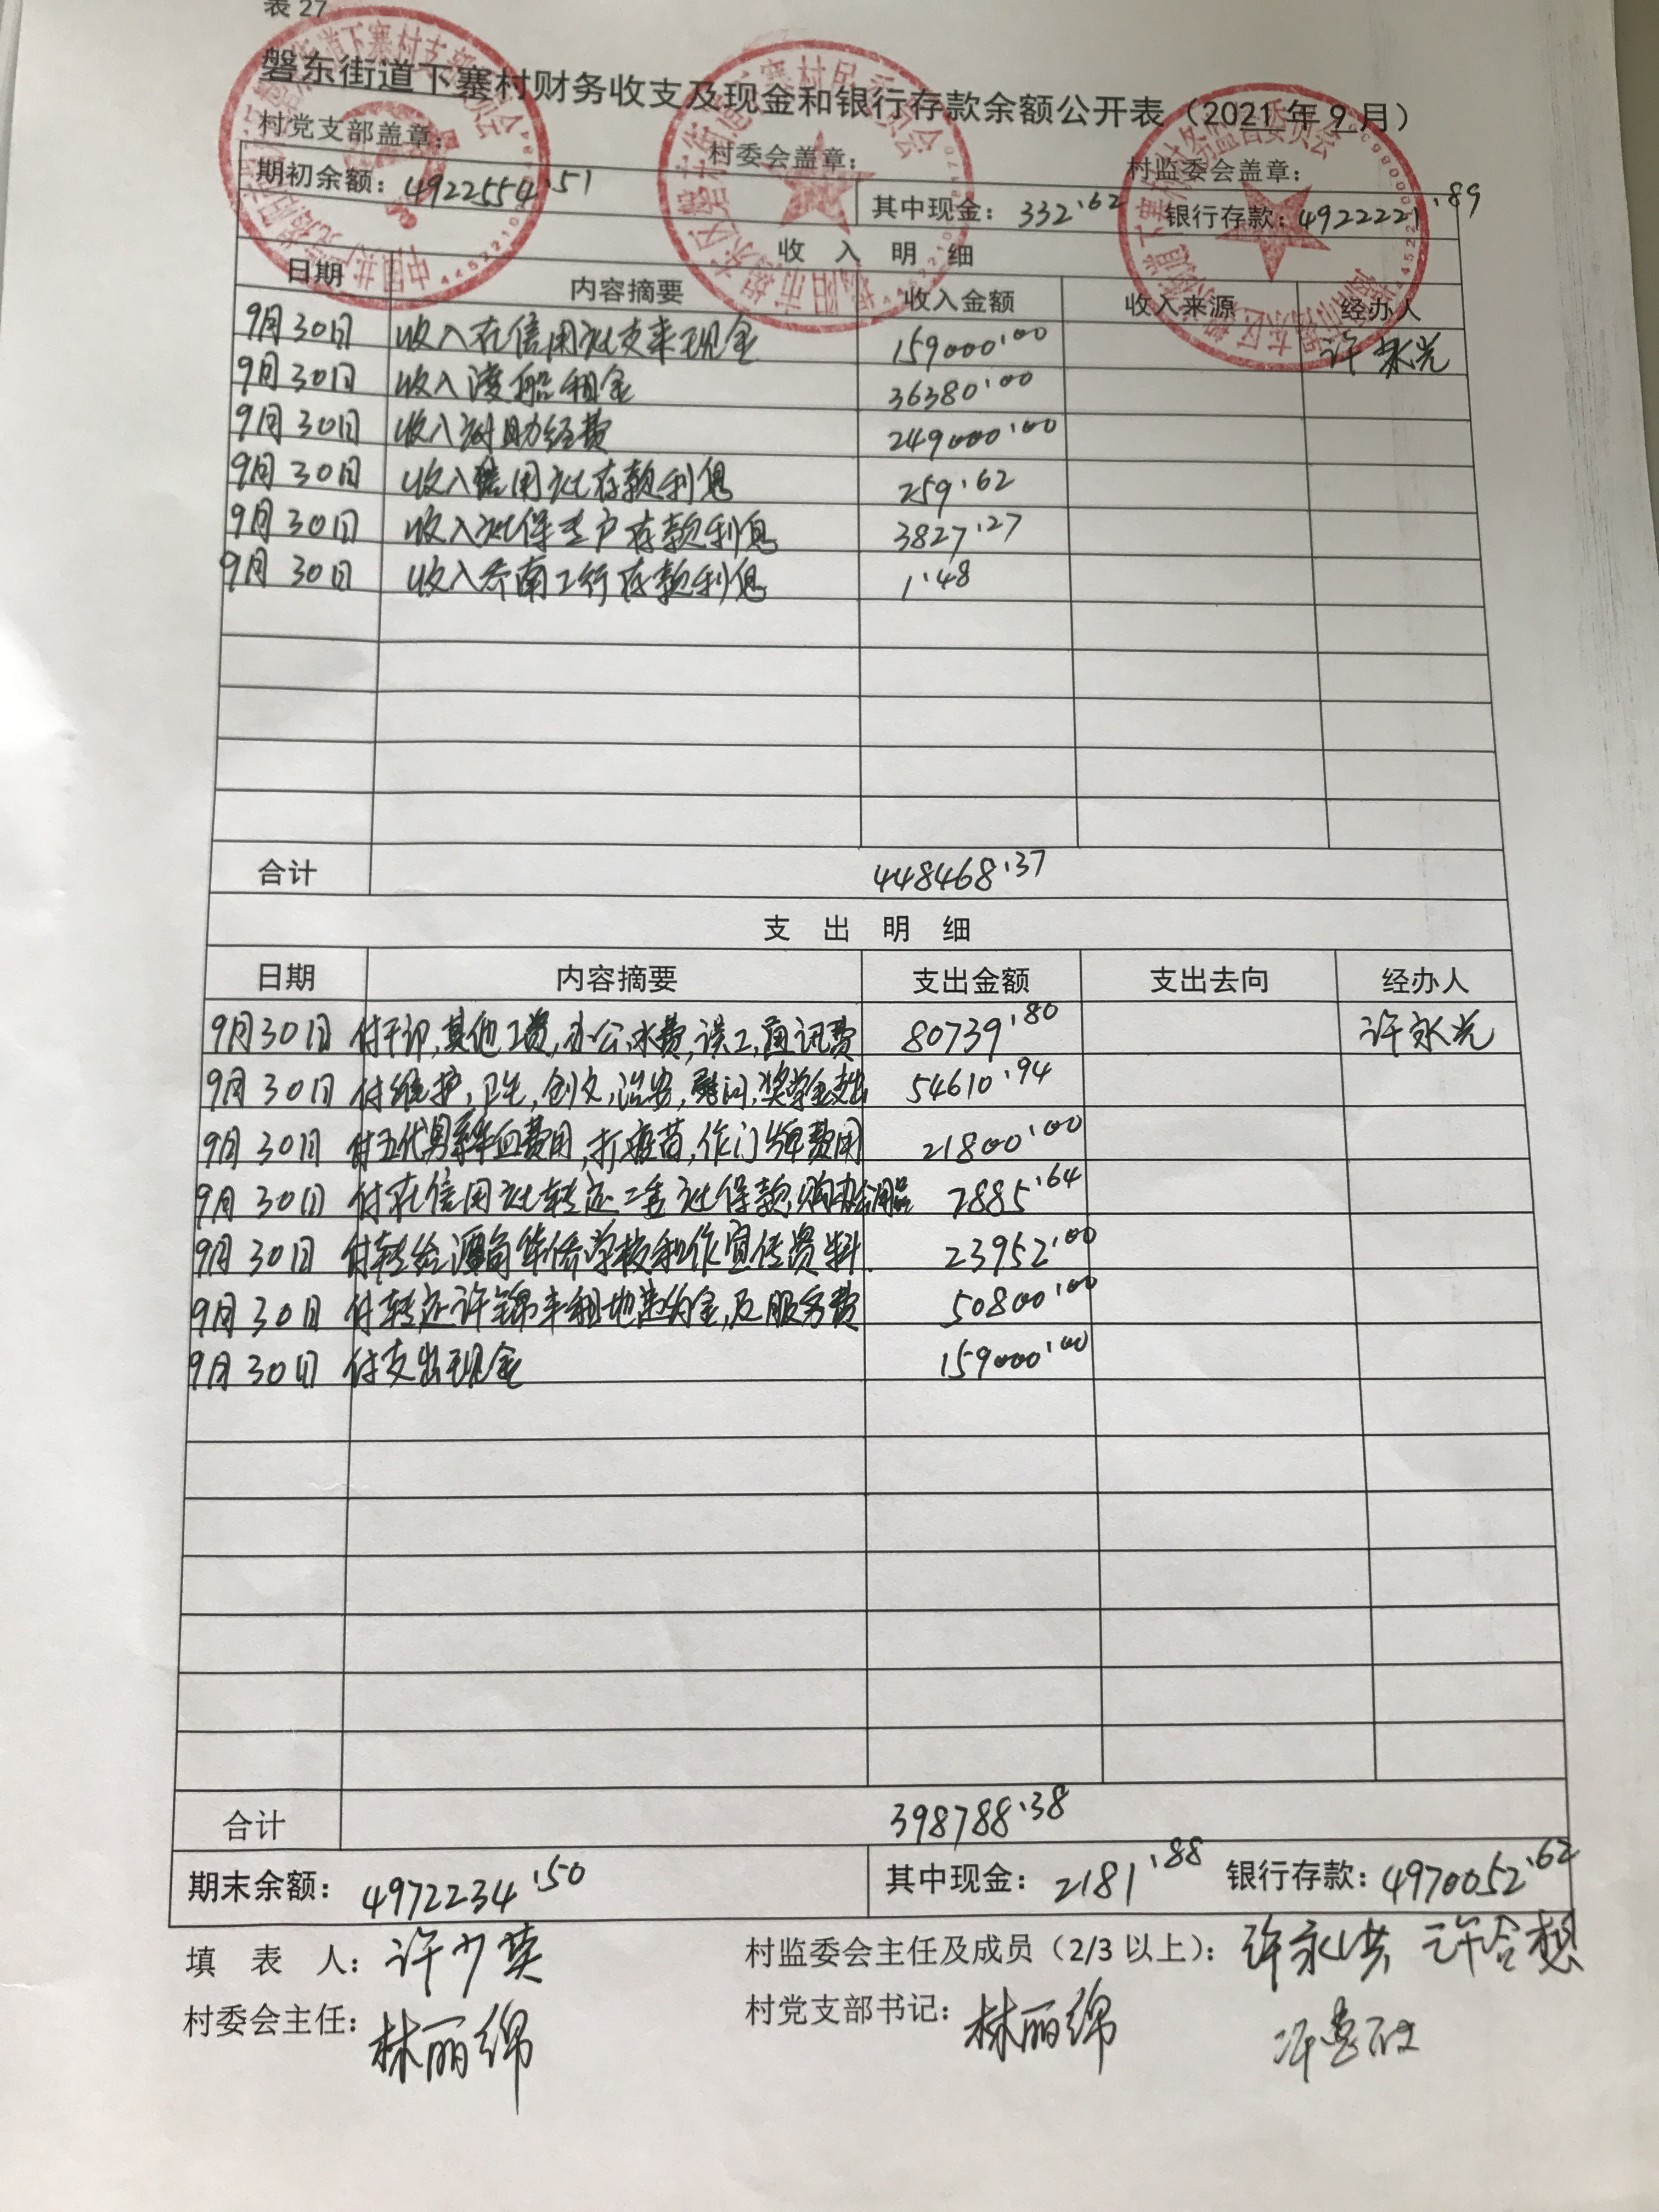 表 27
磐东街道下寨村财务收支及现金和银行存款余额公开表（2021 年 9 月）
村党支部盖章： 村委会盖章： 村监委会盖章：
期初余额：4922554.51 其中现金：332.62 银行存款：4922221.89
收 入 明 细
日期 内容摘要 收入金额 收入来源 经办人
9月30日 收入在信用社支来现金 159000.00 许永光
9月30日 收入渡船租金 36380.00
9月30日 收入 助经费 249000.00
9月30日 收入信用社存款利息 259.62
9月30日 收入社保专户存款利息 3827.27
9月30日 收入乔南工行存款利息 1.48
合计 448468.37
支 出 明 细
日期 内容摘要 支出金额 支出去向 经办人
9月30日 付干部,其他工资,办公,水费,误工,通讯费 80739.80 许永光
9月30日 付维护,卫生,创文,治安,慰问,奖学金支出 54610.94
9月30日 付五代男系采血费用,打疫苗,作门牌费用 21800.00
9月30日 付在信用社转还二季社保款,购办公用品 7885.64
9月30日 付转给 华侨学校和作宣传资料 23952.00
9月30日 付转还许锦丰租地违约金,及服务费 50800.00
9月30日 付支出现金 159000.00
合计 398788.38
期末余额：4972234.50 其中现金：2181.88 银行存款：4970052.62
填 表 人：许少英 村监委会主任及成员（2/3 以上）：许永洪 许合想
村委会主任：林丽绵 村党支部书记：林丽绵